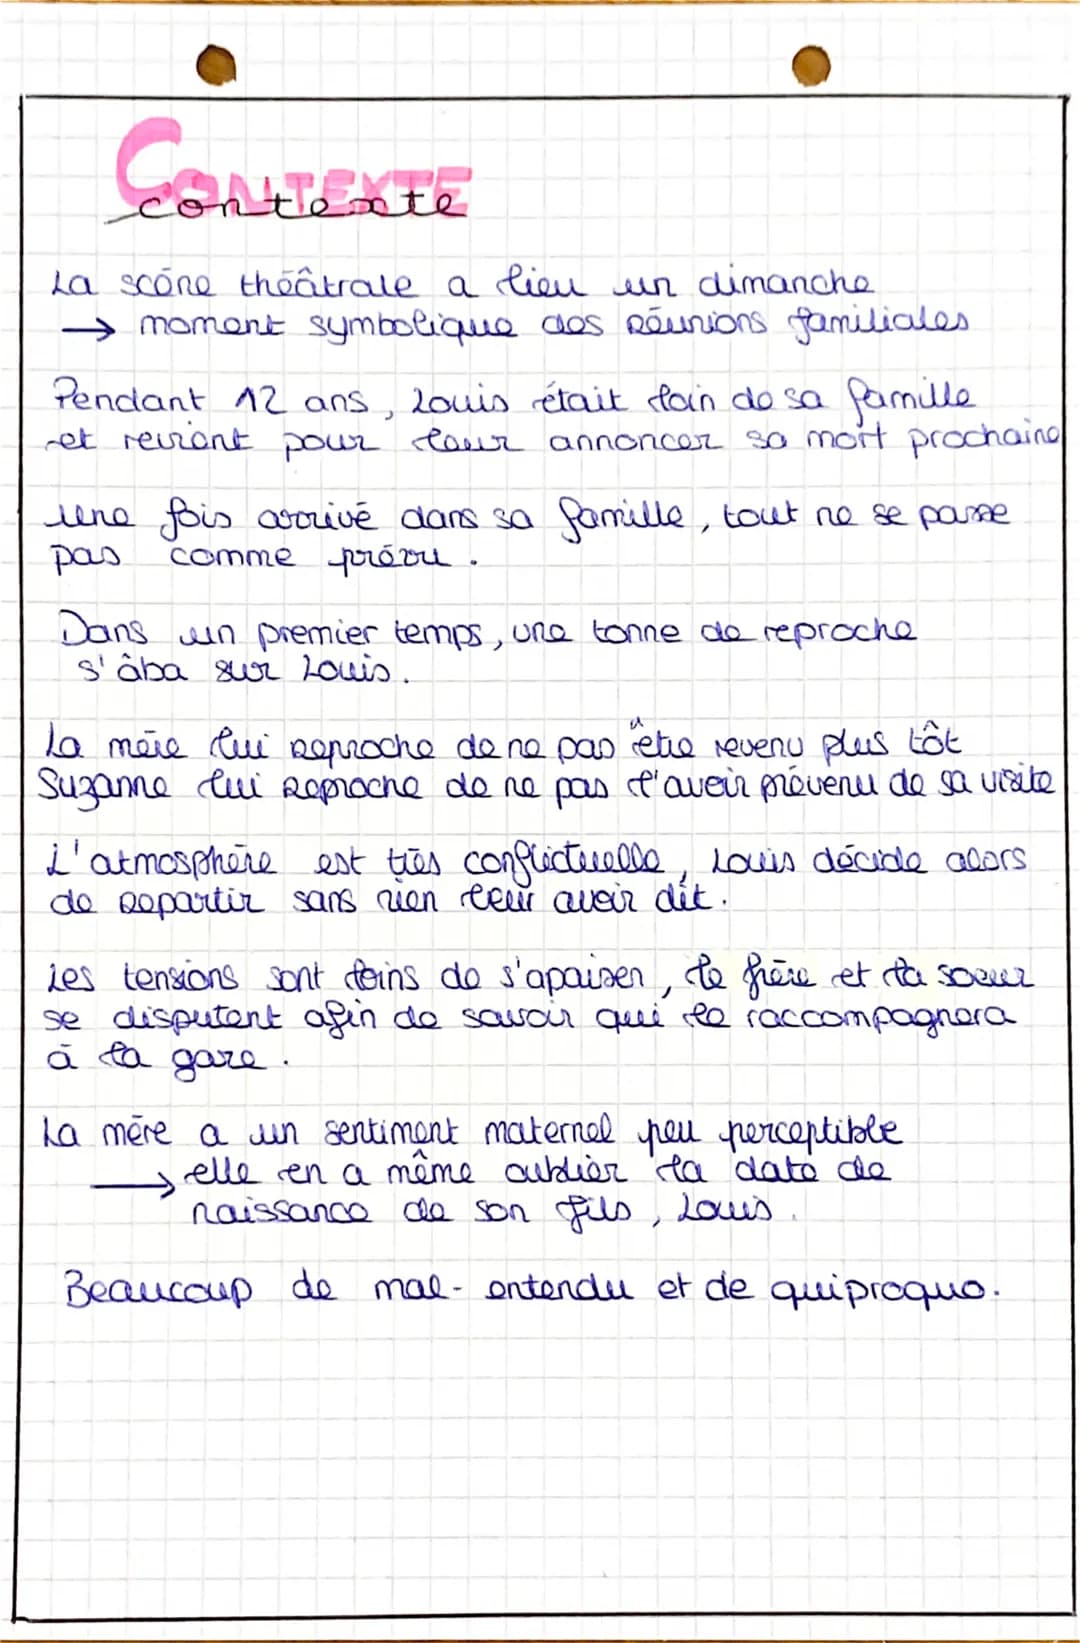 CONTEXTE
contexte
La scène théâtrale a lieu un dimanche
→ moment symbolique des réunions familiales
Pendant 12 ans, Louis était loin de sa famille
et revient pour leur annoncer sa mort prochaine
une fois arrivé dans sa famille, tout ne se passe
pas comme prévu.
Dans un premier temps, une tonne de reproche
s'âba sur Louis.
La mère lui reproche de ne pas être revenu plus tôt
Suzanne lui reproche de ne pas l'avoir prévenu de sa visite
L'atmosphère est très conflictuelle, Louis décide alors
de repartir sans rien leur avoir dit.
Les tensions sont loins de s'apaiser, le frère et la soeur
se disputent afin de savoir qui le raccompagnera
à la gare.
La mère a un sentiment maternel peu perceptible
→ elle en a même oublier la date de
naissance de son fils, Louis.
Beaucoup de mal-entendu et de quiproquo.